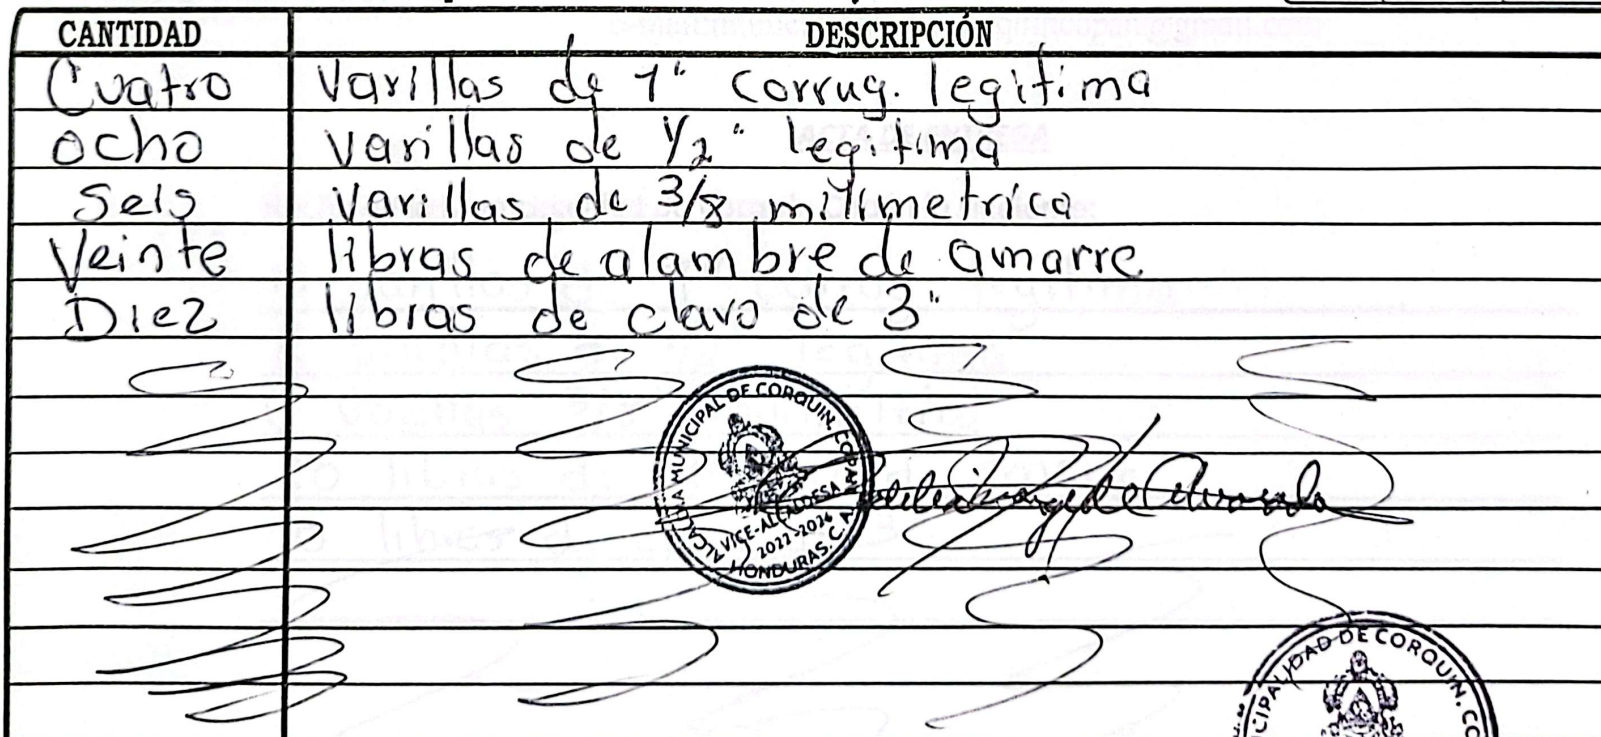 CANTIDAD DESCRIPCIÓN
Cuatro Varillas de 1" Corrug. legitima
ocho Varillas de 1/2" legitima
Seis Varillas de 3/8 milimetrica
Veinte libras de alambre de amarre
Diez libras de clavo de 3"
ALCALDIA MUNICIPAL DE CORQUIN, COPAN
VICE-ALCALDESA
2022-2026
HONDURAS, C.A.
CIPALIDAD DE CORQUIN, CO